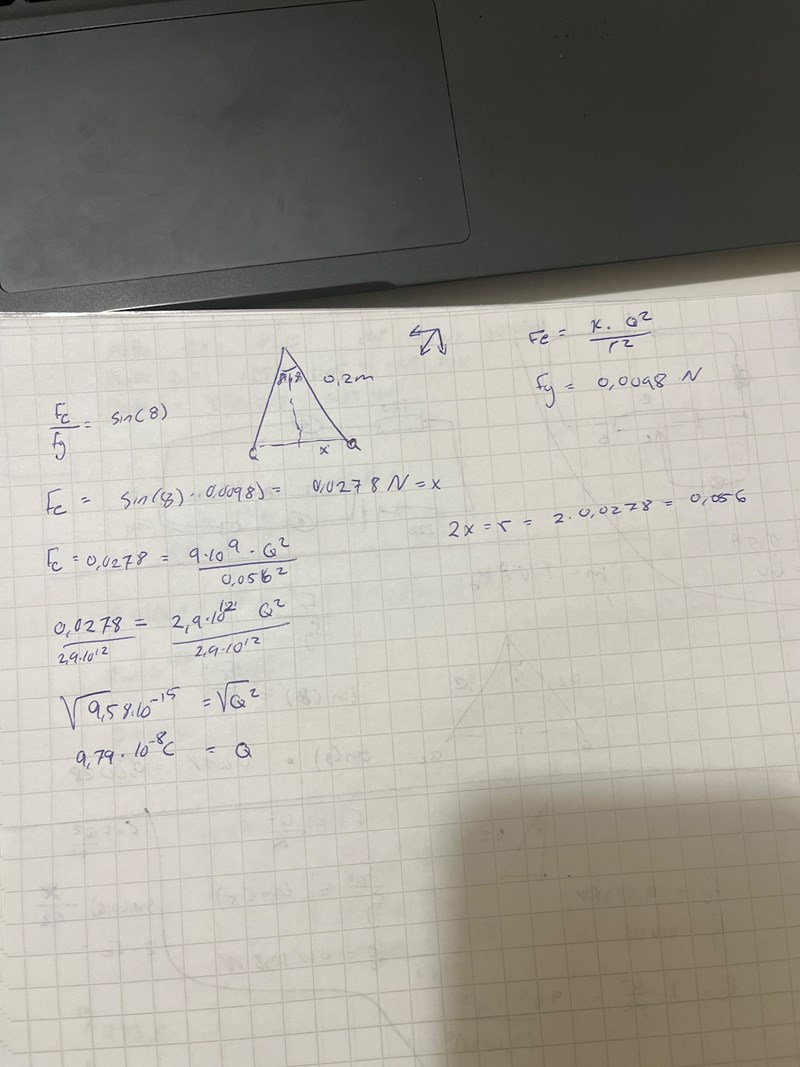 Fe = K · Q² / r²
Fg = 0,0098 N
8 8 0,2m
Q x Q
Fc / Fg = sin(8)
Fc = sin(8) · 0,0098) = 0,0278 N = x
2x = r = 2 · 0,0278 = 0,056
Fc = 0,0278 = 9·10⁹ · Q² / 0,056²
0,0278 / 2,9·10¹² = 2,9·10¹² Q² / 2,9·10¹²
√9,58·10⁻¹⁵ = √Q²
9,79 · 10⁻⁸C = Q